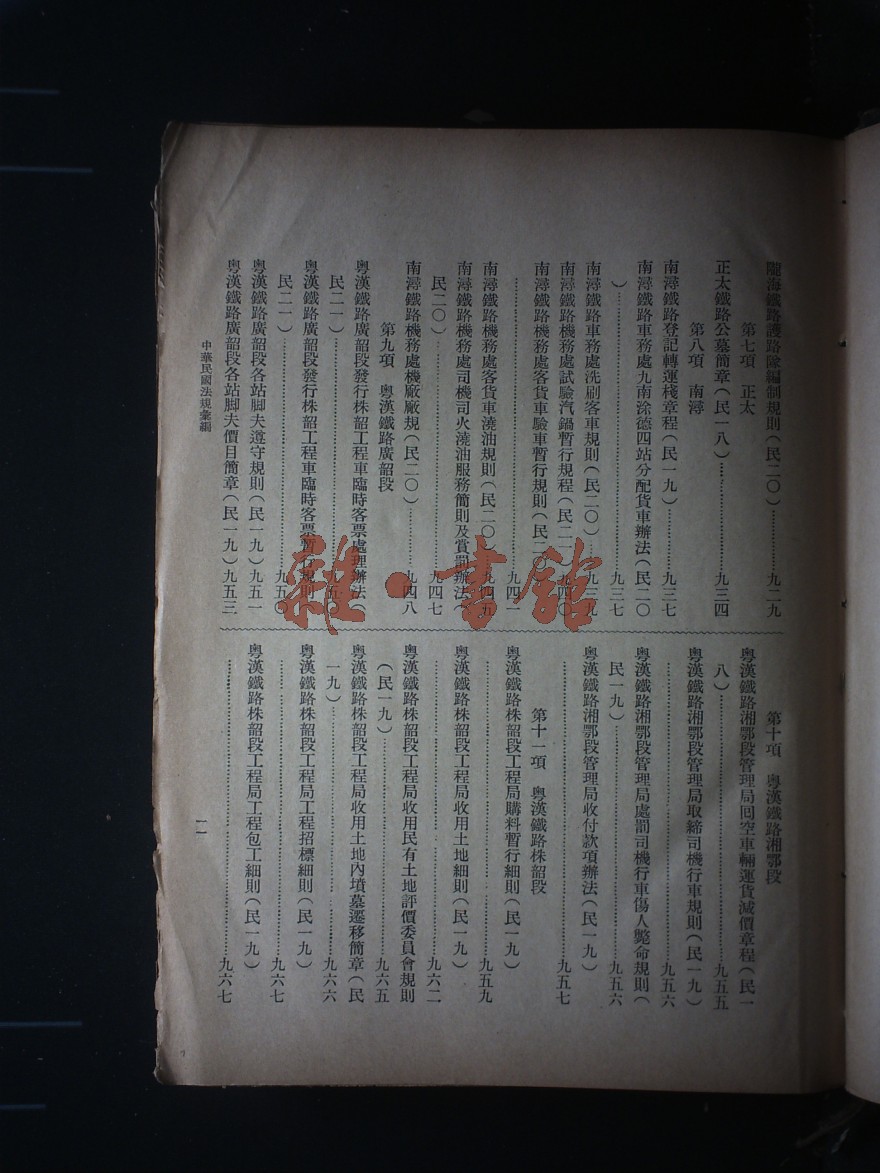 隴海鐵路護路隊編制規則（民二〇）…………九二九
第七項　正太
正太鐵路公墓簡章（民一八）…………九三四
第八項　南潯
南潯鐵路登記轉運棧章程（民一九）…………九三七
南潯鐵路車務處九南涂德四站分配貨車辦法（民二〇
）…………九三七
南潯鐵路車務處洗刷客車規則（民二〇）…………九三九
南潯鐵路機務處試驗汽鍋暫行規程（民二一）九四〇
南潯鐵路機務處客貨車驗車暫行規則（民二〇）
…………九四一
南潯鐵路機務處客貨車澆油規則（民二〇）九四九
南潯鐵路機務處司機司火澆油服務簡則及賞罰辦法（
民二〇）…………九四七
南潯鐵路機務處機廠廠規（民二〇）…………九四八
第九項　粵漢鐵路廣韶段
粵漢鐵路廣韶段發行株韶工程車臨時客票處理辦法（
民二一）…………九五〇
粵漢鐵路廣韶段發行株韶工程車臨時客票暫行規則（
民二一）…………九五〇
粵漢鐵路廣韶段各站脚夫遵守規則（民一九）九五一
粵漢鐵路廣韶段各站脚夫價目簡章（民一九）九五三
第十項　粵漢鐵路湘鄂段
粵漢鐵路湘鄂段管理局回空車輛運貨減價章程（民一
八）…………九五五
粵漢鐵路湘鄂段管理局取締司機行車規則（民一九）
…………九五六
粵漢鐵路湘鄂段管理局處罰司機行車傷人斃命規則（
民一九）…………九五六
粵漢鐵路湘鄂段管理局收付款項辦法（民一九）
…………九五七
第十一項　粵漢鐵路株韶段
粵漢鐵路株韶段工程局購料暫行細則（民一九）
…………九五九
粵漢鐵路株韶段工程局收用土地細則（民一九）
…………九六二
粵漢鐵路株韶段工程局收用民有土地評價委員會規則
（民一九）…………九六五
粵漢鐵路株韶段工程局收用土地內墳墓遷移簡章（民
一九）…………九六六
粵漢鐵路株韶段工程局工程招標細則（民一九）
…………九六七
粵漢鐵路株韶段工程局工程包工細則（民一九）
…………九六七
中華民國法規彙編
一一
雜·書館